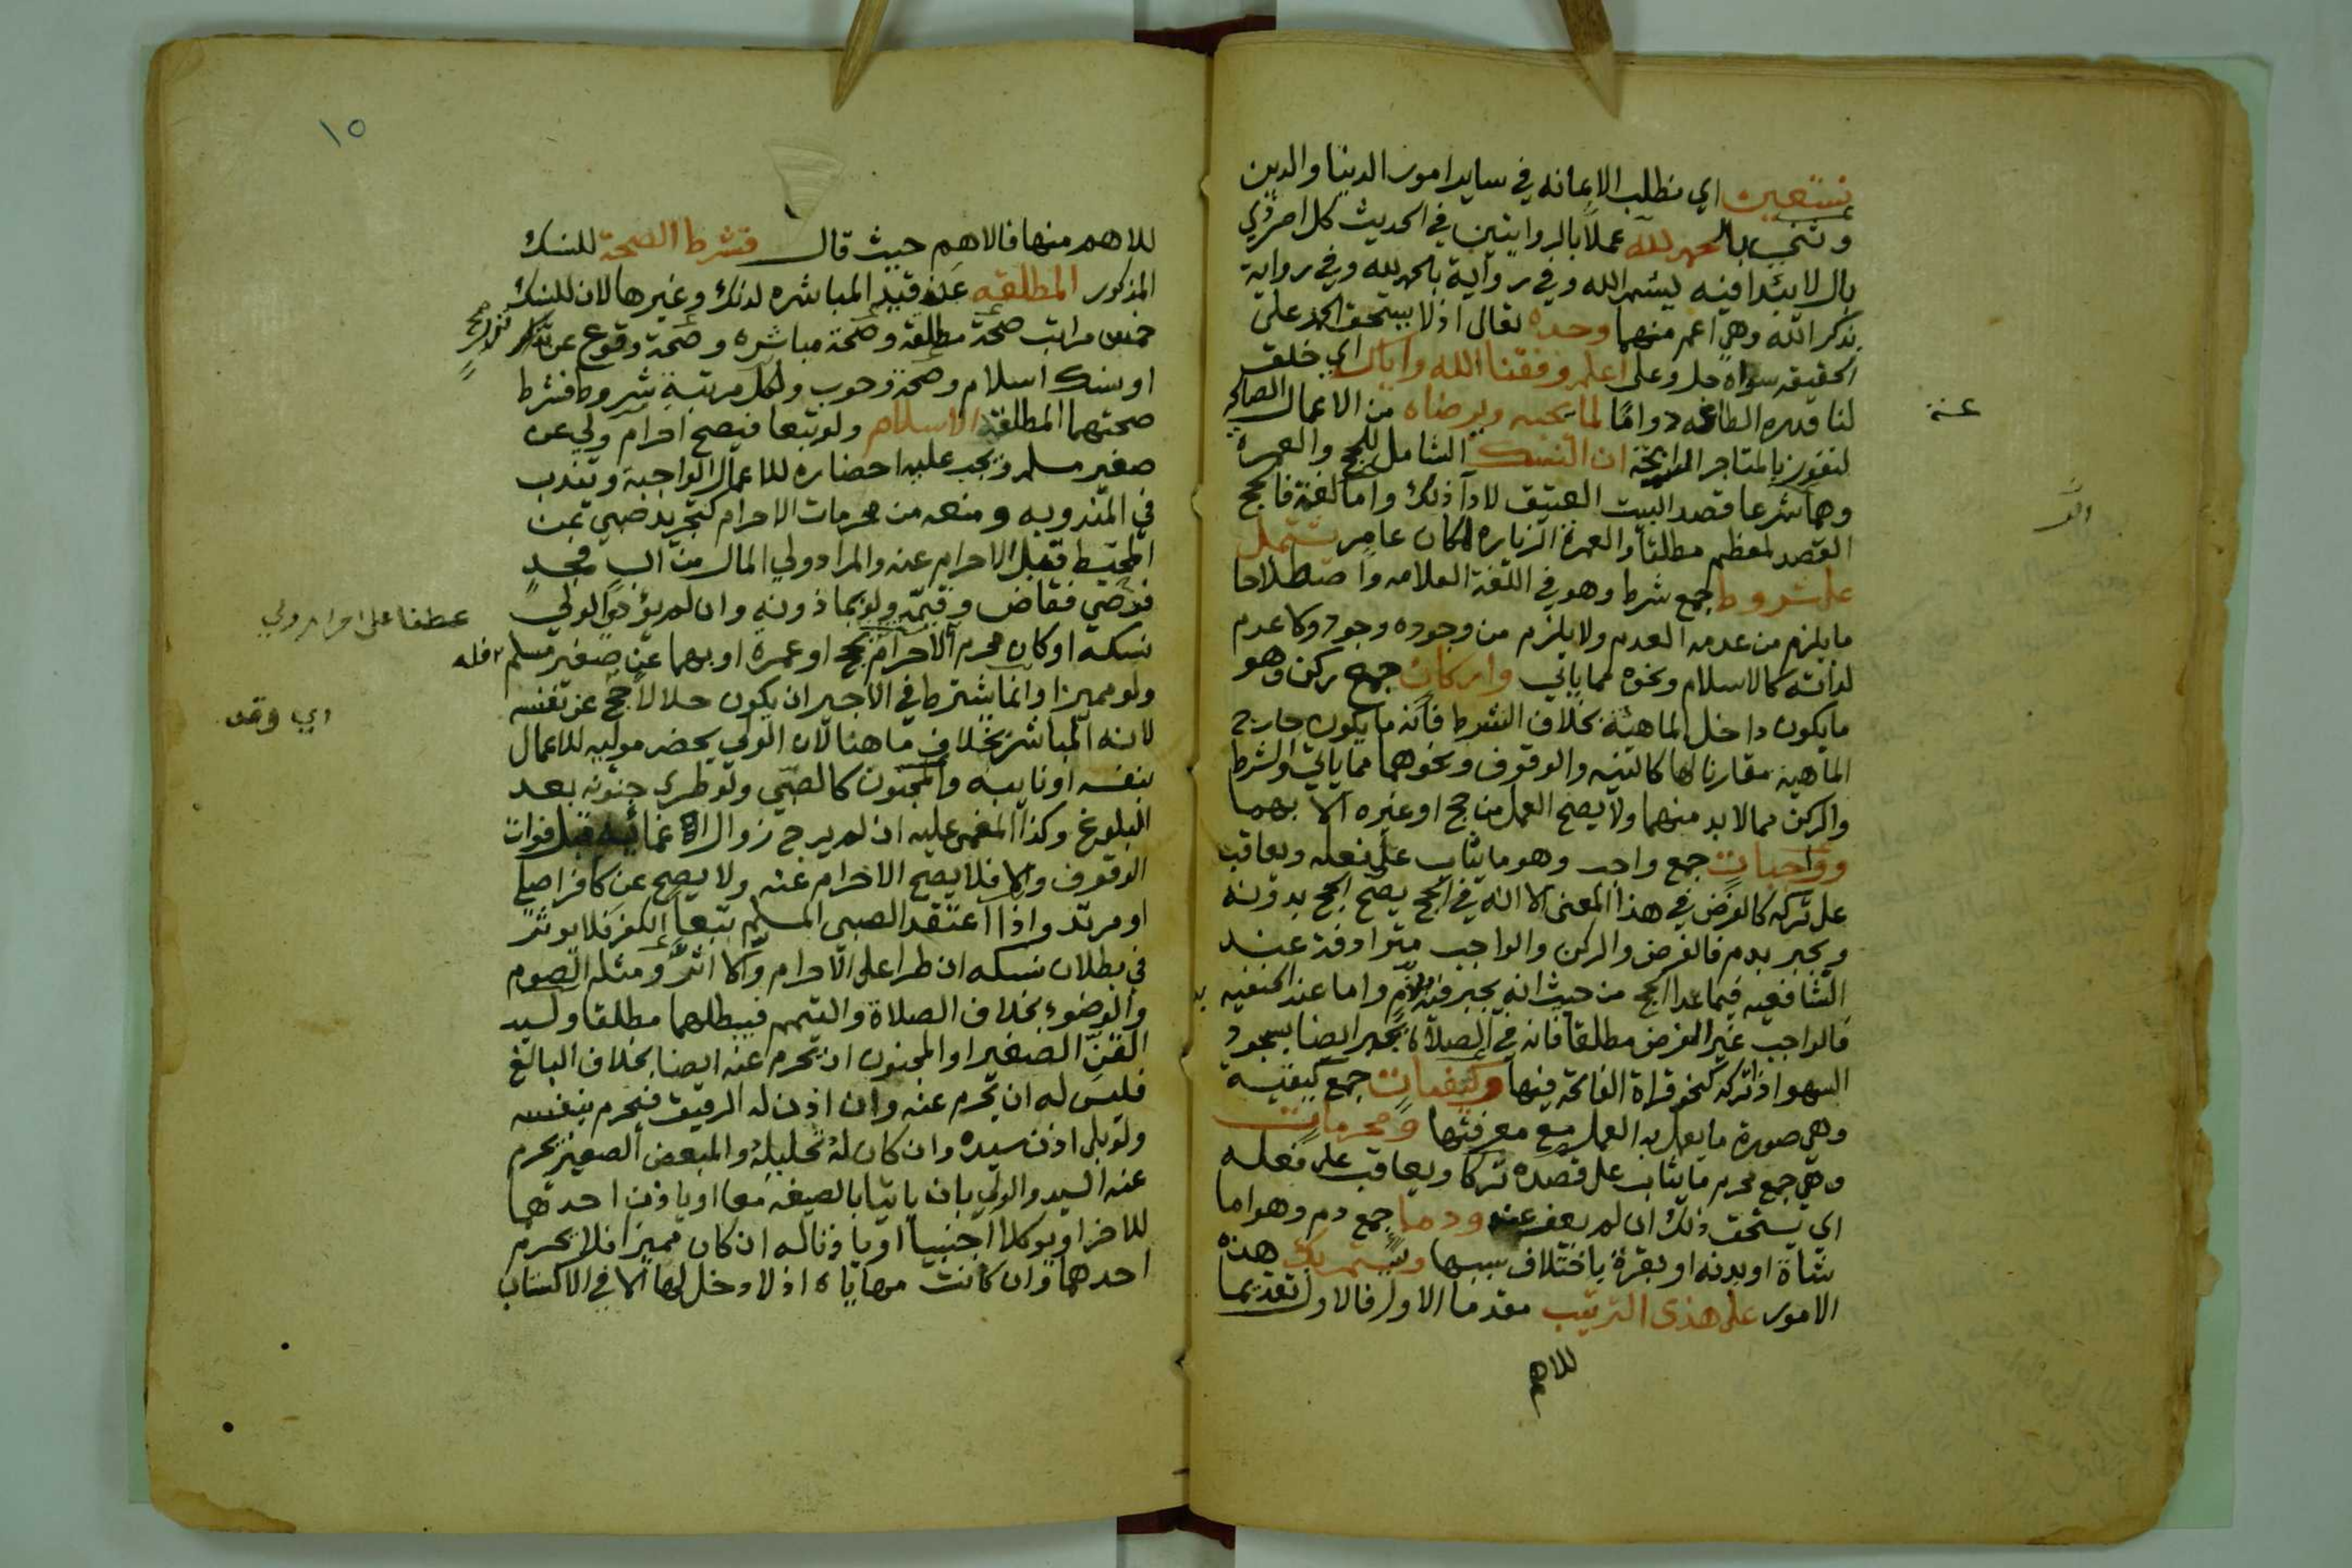 نستعين اي نطلب الاعانه في ساير امور الدنيا والدين
وثني بالحمد لله عملا بالروايتين في الحديث كل امر ذي
بال لا يبدا فيه ببسم الله وفي رواية بالحمد لله وفي رواية
بذكر الله وهي اعم منهما وحده تعالى اذ لا يستحق الحمد على
الحقيقه سواه جل وعلى اعلم وفقنا الله واياك اي خلق
لنا قدره الطاعه دواما لما يحبه ويرضاه من الاعمال الصالحه
لنفوز بالمتاجر الرابحة ان النسك الشامل للحج والعمرة
وهما شرعا قصد البيت العتيق لادا ذلك واما لغة فالحج
القصد لمعظم مطلقا والعمرة الزياره لمكان عامر يشتمل
على شروط جمع شرط وهو في اللغة العلامه واصطلاحا
ما يلزم من عدمه العدم ولا يلزم من وجوده وجود ولا عدم
لذاته كالاسلام ونحوه مما ياتي واركان جمع ركن وهو
ما يكون داخل الماهية بخلاف الشرط فانه ما يكون خارج
الماهية مقارنا لها كالنيه والوقوف ونحوهما مما ياتي والشرط
والركن مما لا بد منهما ولا يصح العمل من حج او غيره الا بهما
وواجبات جمع واجب وهو ما يثاب على فعله ويعاقب
على تركه كالفرض في هذا المعنى الا انه في الحج يصح الحج بدونه
ويجبر بدم فالفرض والركن والواجب مترادفة عند
الشافعيه فيما عدا الحج من حيث انه يجبر فيه بدم واما عند الحنفيه
فالواجب غير الفرض مطلقا فانه في الصلاة يجبر ايضا بسجود
السهو اذا تركه كنحو قراة الفاتحة فيها وكيفيات جمع كيفية
وهي صورة ما يعمل به العمل مع معرفتها ومحرمات
وهي جمع محرم ما يثاب على قصده تركا ويعاقب على فعله
اي يستحق ذلك ان لم يعف عنه ودما جمع دم وهو اما
شاة او بدنه او بقرة باختلاف سببها هذه
الامور على هذى الترتيب مقدما الاول فالاول تقديما
للاهم
عنه
١٥
للاهم منها فالاهم حيث قال فشرط الصحة للنسك
المذكور المطلقه عن قيد المباشره لذلك وغيرها لان للنسك
خمس مراتب صحة مطلقة وصحة مباشره وصحة وقوع عن نذر
او نسك اسلام وصحة وجوب ولكل مرتبة شروط فشرط
صحتهما المطلقة الاسلام ولو تبعا فيصح احرام ولي عن
صغير مسلم ويجب عليه احضاره للاعمال الواجبة ويندب
في المندوبه ومنعه من محرمات الاحرام كتجريد صبي عن
المحيط قبل الاحرام عنه والمراد ولي المال من اب فجد
فوصي فقاض وقيمه ولو بماذونه وان لم يؤد الولي
نسكه او كان محرم الاحرام بحج او عمرة او بهما عن صغير مسلم
ولو مميزا وانما يشترط في الاجير ان يكون حلالا حج عن نفسه
لانه المباشر بخلاف ما هنا لان الولي يحضر موليه للاعمال
بنفسه او نايبه والمجنون كالصبي ولو طرى جنونه بعد
البلوغ وكذا المغمى عليه ان لم يرج زوال اغمائيه قبل فوات
الوقوف والا فلا يصح الاحرام عنه ولا يصح عن كافر اصلي
او مرتد واذا اعتقد الصبي المسلم تبعا الكفر فلا يوثر
في بطلان نسكه ان طرا على الاحرام والا اثر ومثله الصوم
والوضوء بخلاف الصلاة والتيمم فيبطلهما مطلقا ولسيد
القن الصغير او المجنون ان يحرم عنه ايضا بخلاف البالغ
فليس له ان يحرم عنه وان اذن له الرقيق فيحرم بنفسه
ولو بلا اذن سيده وان كان له تحليله والمبعض الصغير يحرم
عنه السيد والولي بان ياتيا بالصيغه معا او ياذن احدهما
للاخر او يوكلا اجنبيا او ياذنا له ان كان مميزا فلا يحرم
احدهما وان كانت مهاياه اذ لا دخل لها الا في الاكساب
عطفا على احرام ولي
اي وقد